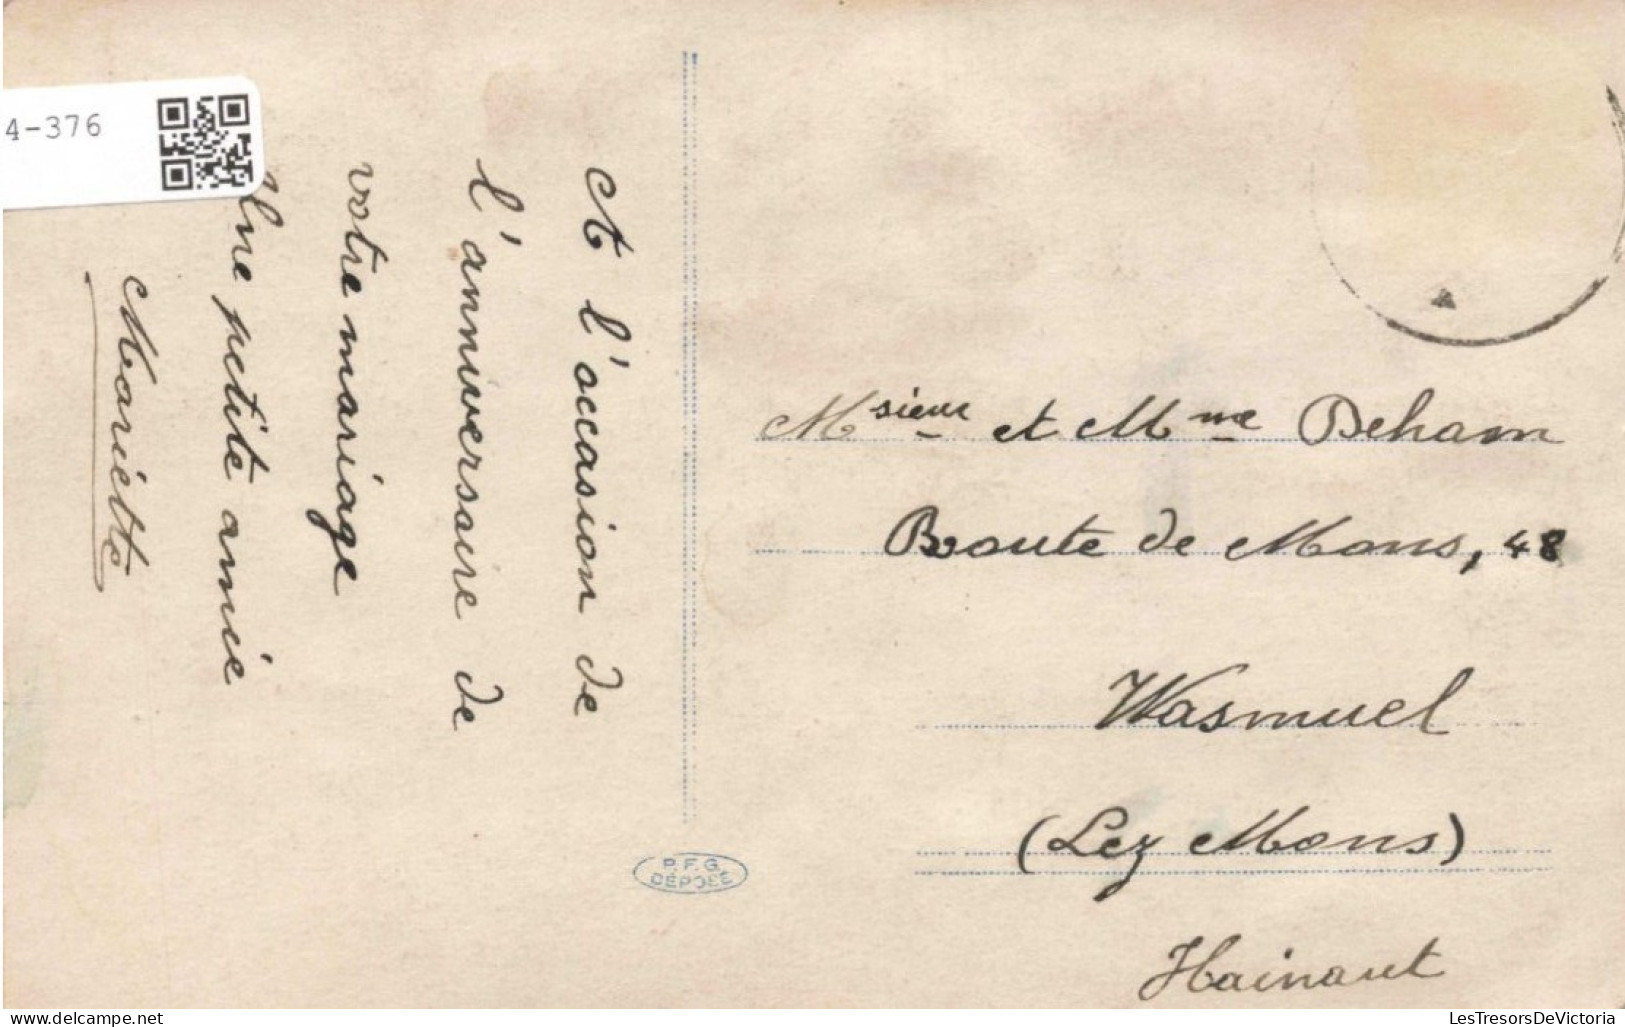 4-376
A l'occasion de
l'anniversaire de
votre mariage
Une petite amie
Mariette
Msieur et Mme Deham
Route de Mons, 48
Wasmuel
(Lez Mons)
Hainaut
P.F.G.
DÉPOSÉ
A
delcampe.net
LesTresorsDeVictoria